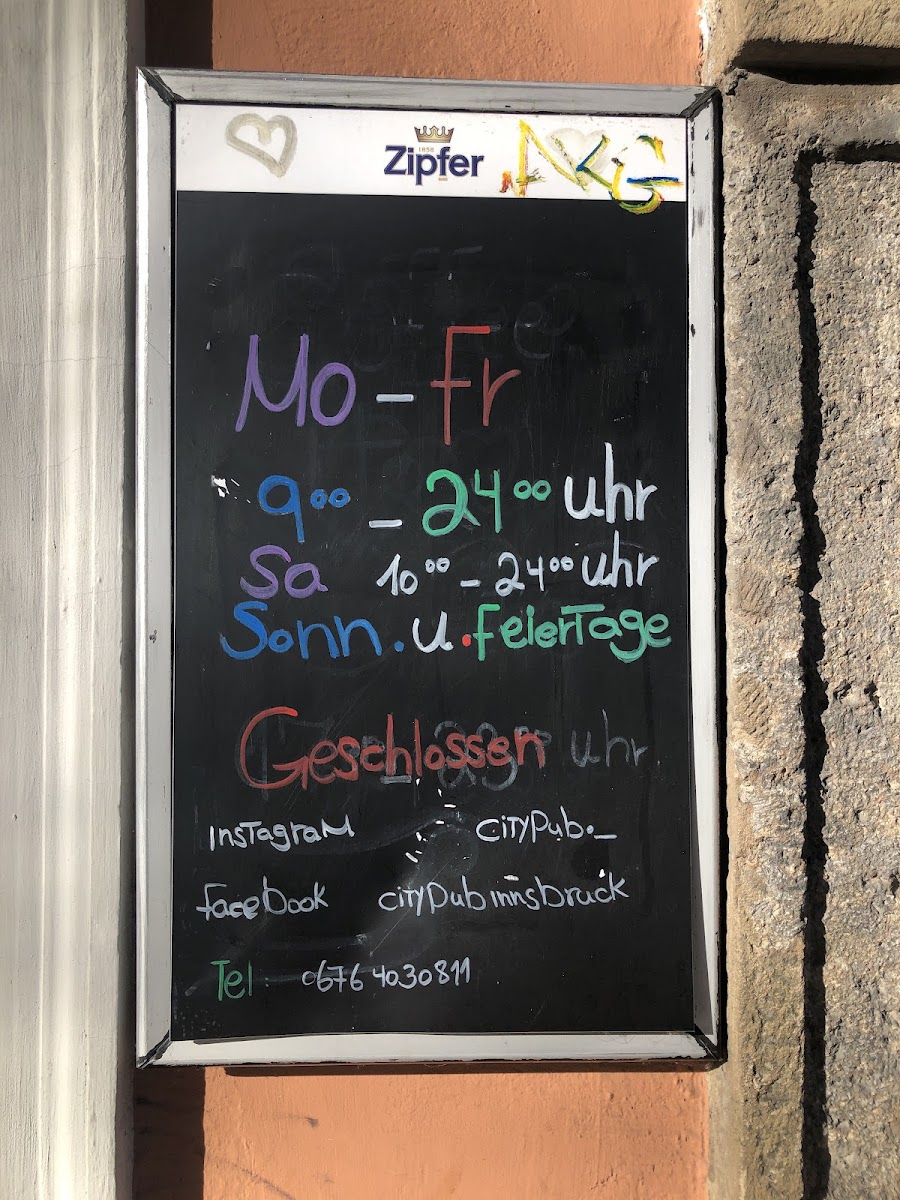 1858
Zipfer
AKG
Mo - Fr
9⁰⁰ - 24⁰⁰ uhr
Sa 10⁰⁰ - 24⁰⁰ uhr
Sonn. u. FeierTage
Geschlossen uhr
InsTagraM CiTyPub._
facebook cityPubinnsbruck
Tel 0676 4030811